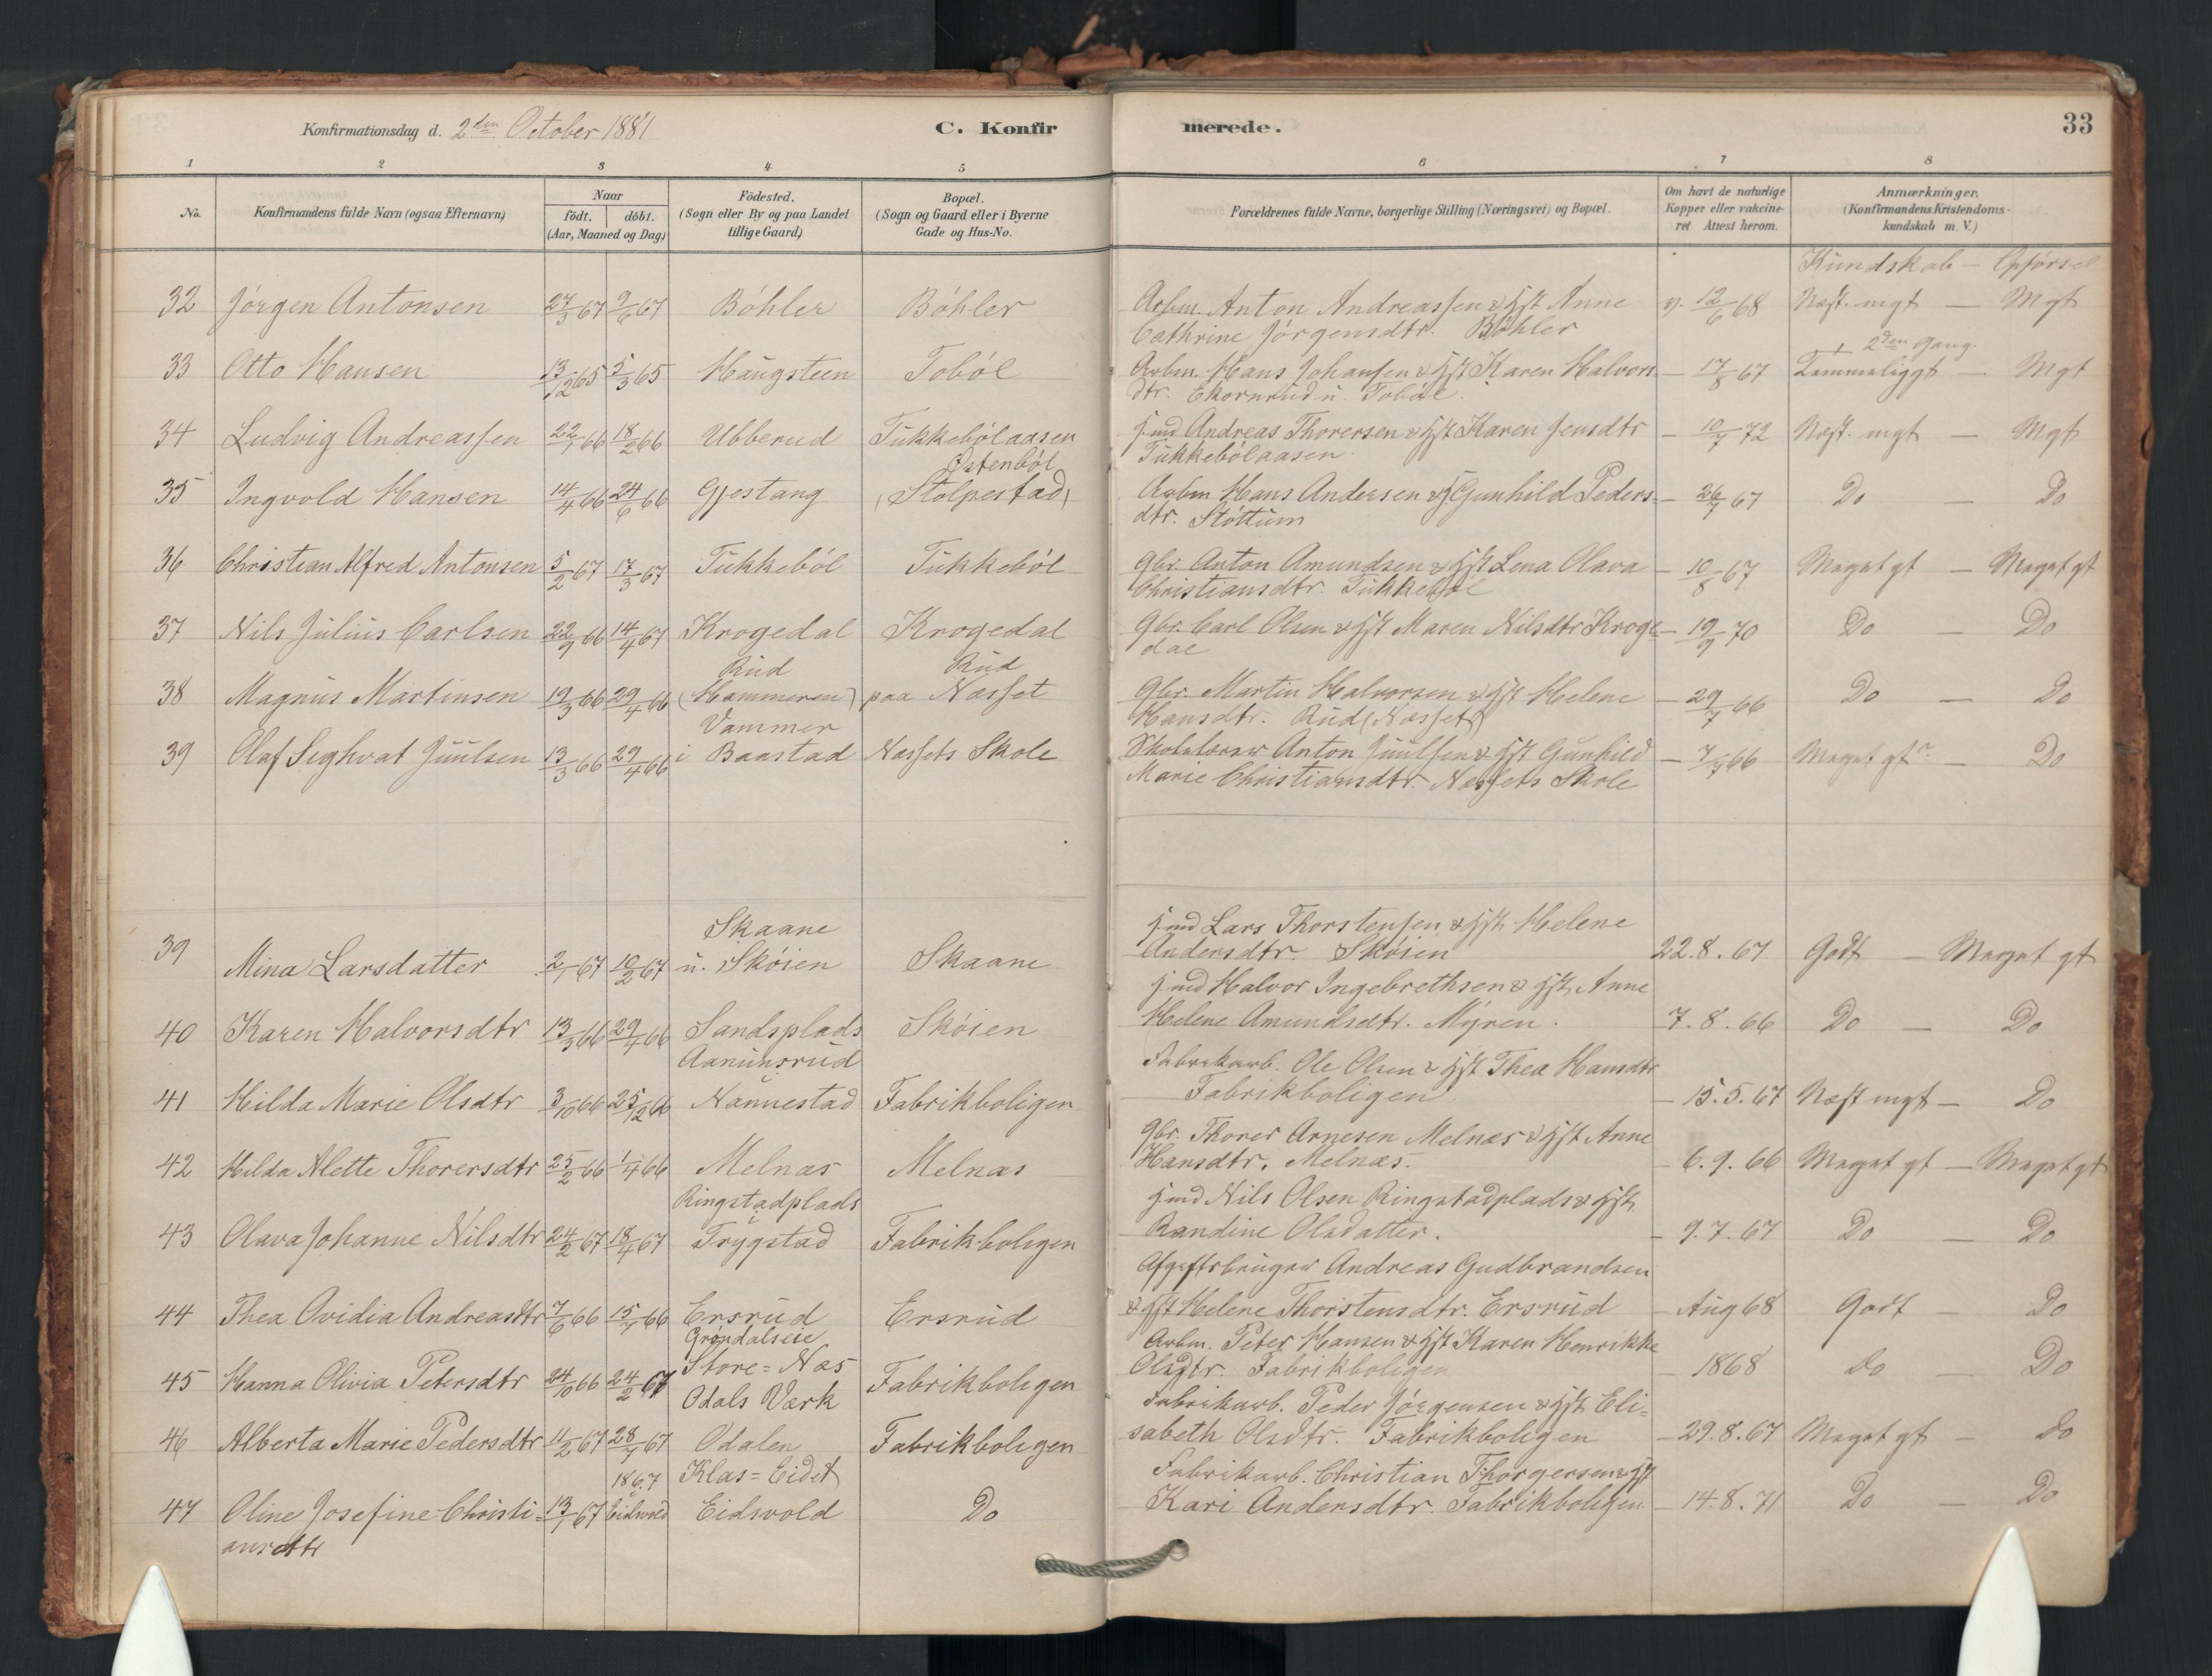 Konfirmationsdag d. 2den October 1881
C. Konfirmerede.
33
1 2 3 4 5 6 7 8
No.
Konfirmandens fulde Navn (ogsaa Efternavn)
Naar
födt. döbt.
(Aar, Maaned og Dag)
Födested.
(Sogn eller By og paa Landet
tillige Gaard)
Bopæl.
(Sogn og Gaard eller i Byerne
Gade og Hus-No.
Forældrenes fulde Navne, borgerlige Stilling (Næringsvei) og Bopæl.
Om havt de naturlige
Kopper eller vakcine-
ret Attest herom.
Anmærkninger.
(Konfirmandens Kristendoms-
kundskab m. V.)
Kundskab - Opførsel
32 Jörgen Antonsen 27/3 67 9/6 67 Böhler Böhler Arbm. Anton Andreassen & Hst Anne v. 12/6 68 Næst. mgt - Mgt
Cathrine Jörgensdtr. Böhler
2den Gang.
33 Otto Hansen 13/12 65 5/3 65 Haugsteen Toböl Arbm. Hans Johansen & Hst Karen Halvors- - 17/8 67 Temmeliggt - Mgt
dtr. Ekornrud u. Toböl.
34 Ludvig Andreassen 22/1 66 18/2 66 Ubberud Tukkebölaasen Jmd Andreas Thorersen & Hst Karen Jensdtr - 10/7 72 Næst. mgt - Mgt
Tukkebölaasen
Östenböl
35 Ingvold Hansen 14/4 66 24/6 66 Gjestang (Stolpestad) Arbm Hans Andersen & H. Gunhild Peders- - 26/7 67 Do - Do
dtr. Stöttum
36 Christian Alfred Antonsen 5/2 67 17/3 67 Tukkeböl Tukkeböl Gbr. Anton Amundsen & Hst Lena Olava - 10/8 67 Meget gt - Meget gt
Christiansdtr. Tukkeböl
37 Nils Julius Carlsen 22/9 66 14/4 67 Krogedal Krogedal Gbr. Carl Olsen & Hst Maren Nilsdtr Kroge- - 19/9 70 Do - Do
dal
Rud Rud
38 Magnus Martinsen 19/3 66 29/4 66 (Hammeren) paa Næsset Gbr. Martin Halvorsen & Hst Helene - 29/7 66 Do - Do
Hansdtr. Rud (Næsset)
Vammer
39 Olaf Seghvat Juulsen 13/3 66 29/4 66 i Baastad Næssets Skole Skolelærer Anton Juulsen & Hst Gunhild - 7/9 66 Meget gt - Do
Marie Christiansdtr. Næssets Skole
Skaane Jmd Lars Thorstensen & Hst. Helene
39 Mina Larsdatter 2/1 67 10/2 67 u. Sköien Skaane Andersdtr. Sköien 22.8.67. Godt - Meget gt
Jmd Halvor Ingebrethsen & Hst. Anne
40 Karen Halvorsdtr 13/3 66 29/4 66 Sandsplads Sköien Helene Amundsdtr. Myren. 7.8.66 Do - Do
Aanunsrud Fabrikarb. Ole Olsen & Hst Thea Hansdtr
41 Hilda Marie Olsdtr 3/10 66 25/12 66 Nannestad Fabrikboligen Fabrikboligen - 15.5.67 Næst mgt - Do
Gbr. Thorer Arnesen Melnæs & Hst Anne
42 Hilda Alette Thorersdtr 25/2 66 1/4 66 Melnæs Melnæs Hansdtr. Melnæs. - 6.9.66 Meget gt - Meget gt
Ringstadplads Jmd Nils Olsen Ringstadplads & Hst.
43 Olava Johanne Nilsdtr 24/2 67 18/4 67 Trygstad Fabrikboligen Randine Olsdatter. - 9.7.67 Do - Do
Afgiftsbruger Andreas Gudbrandsen
44 Thea Ovidia Andreasdtr 7/6 66 15/7 66 Ersrud Ersrud & Hst Helene Thorstensdtr. Ersrud - Aug 68 Godt - Do
Gröndalseie Arbm. Peter Hansen & Hst Karen Henrikke
45 Hanna Olivia Petersdtr 24/10 66 24/2 67 Store-Næs Fabrikboligen Olsdtr. Fabrikboligen - 1868 Do - Do
Odals Værk Fabrikarb. Peder Jörgensen & Hst. Eli-
46 Alberta Marie Pedersdtr 11/2 67 28/4 67 Odalen Fabrikboligen sabeth Olsdtr. Fabrikboligen - 29.8.67 Meget gt - Do
1867 Klas-Eidet Fabrikarb. Christian Thorgersen & Hst
47 Oline Josefine Christi- 13/1 67 Eidsvold Eidsvold Do Kari Andersdtr. Fabrikboligen - 14.8.71 Do - Do
ansdtr